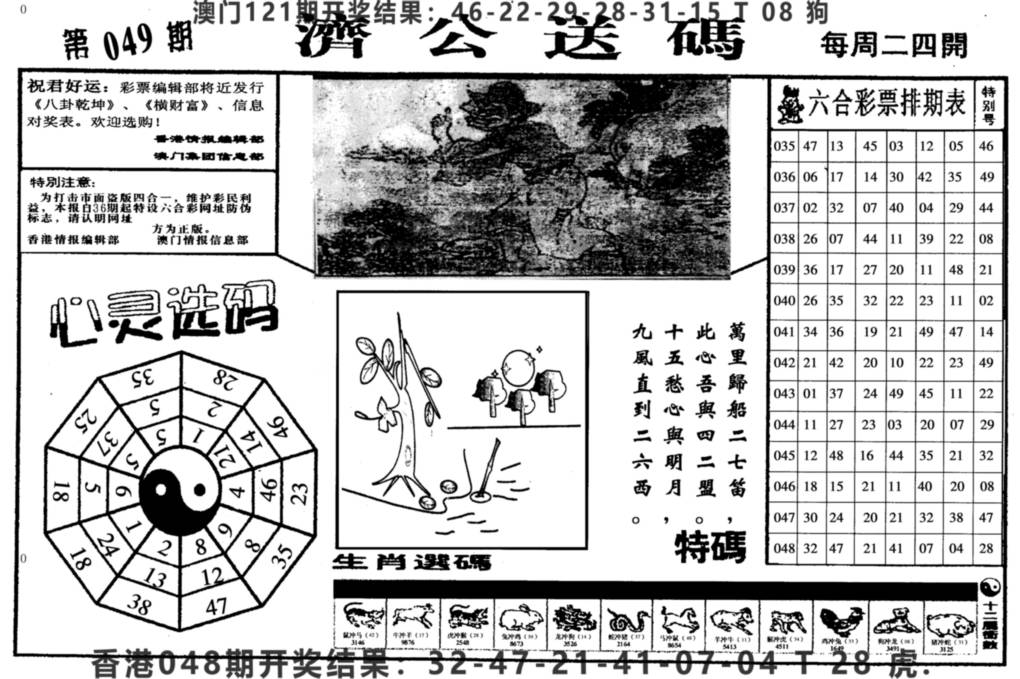 澳门121期开奖结果：46-22-29-28-31-15 T 08 狗
第049期
濟公送碼
每周二四開
祝君好运：彩票编辑部将近发行
《八卦乾坤》、《横财富》、信息
对奖表。欢迎选购！
香港情报编辑部
澳门集团信息部
特別注意：
为打击市面盗版四合一，维护彩民利
益，本报自36期起特设六合彩网址防伪
标志，请认明网址
方为正版。
香港情报编辑部 澳门情报信息部
六合彩票排期表 特别号
035 47 13 45 03 12 05 46
036 06 17 14 30 42 35 49
037 02 32 07 40 04 29 44
038 26 07 44 11 39 22 08
039 36 17 27 20 11 48 21
040 26 35 32 22 23 11 02
041 34 36 19 21 49 47 14
042 21 42 20 10 22 23 49
043 01 37 24 49 45 11 22
044 11 27 23 03 20 07 29
045 12 48 16 44 35 21 32
046 18 15 21 11 40 20 08
047 30 24 20 21 32 38 47
048 32 47 21 41 07 04 28
心灵选码
35 28 46 23 35 47 38 18 18 25
5 2 14 46 8 12 13 24 5 37
5 1 21 4 9 8 2 1 6 5
萬里歸船二七笛，
此心吾與四二盟。
十五愁心與明月，
九風直到二六西。
特碼
生肖選碼
鼠冲马（42） 3146
牛冲羊 9876
虎冲猴 2548
兔冲鸡 8673
龙冲狗 3526
蛇冲猪 2164
马冲鼠 8654
羊冲牛 5413
猴冲虎 4511
鸡冲兔 1649
狗冲龙 3491
猪冲蛇 3125
香港048期开奖结果：32-47-21-41-07-04 T 28 虎.